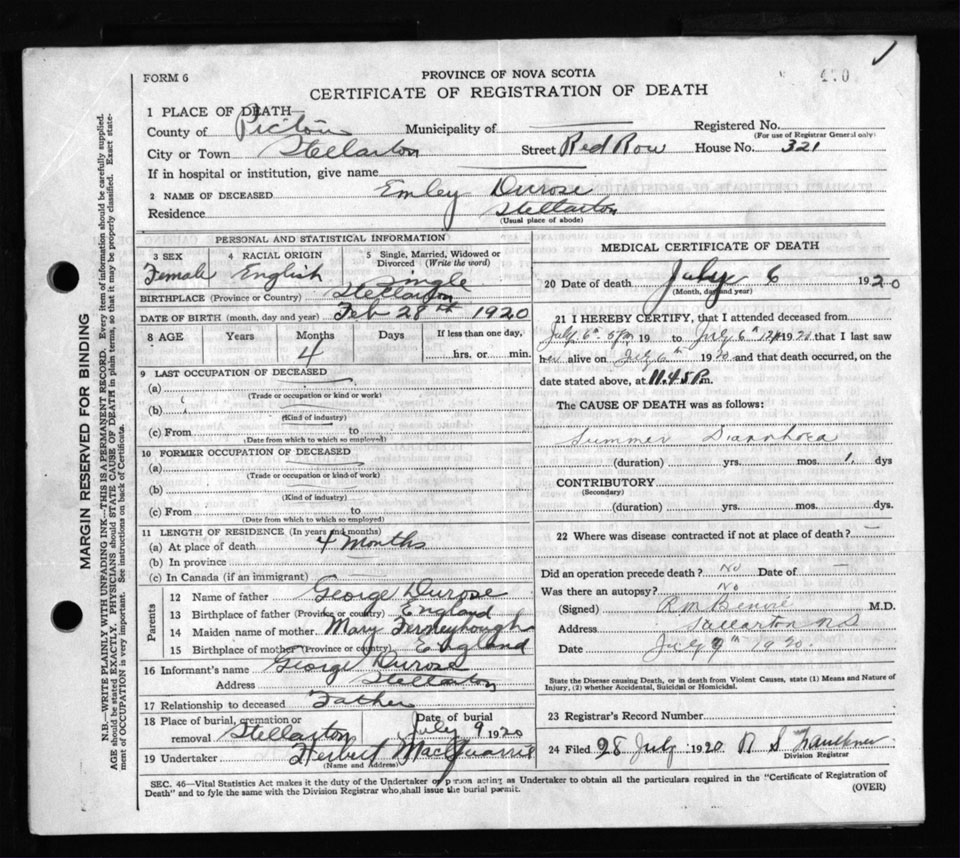 FORM 6
PROVINCE OF NOVA SCOTIA
CERTIFICATE OF REGISTRATION OF DEATH
1 PLACE OF DEATH
County of Pictou Municipality of Registered No.
(For use of Registrar General only)
City or Town Stellarton Street Red Row House No. 321
If in hospital or institution, give name
2 NAME OF DECEASED Emley Durose
Residence Stellarton
(Usual place of abode)
PERSONAL AND STATISTICAL INFORMATION
3 SEX Female 4 RACIAL ORIGIN English 5 Single, Married, Widowed or Divorced (Write the word) Single
BIRTHPLACE (Province or Country) Stellarton
DATE OF BIRTH (month, day and year) Feb 28th 1920
8 AGE Years Months Days If less than one day,
4 hrs. or min.
9 LAST OCCUPATION OF DECEASED
(a)
(Trade or occupation or kind or work)
(b)
(Kind of industry)
(c) From to
(Date from which to which so employed)
10 FORMER OCCUPATION OF DECEASED
(a)
(Trade or occupation or kind of work)
(b)
(Kind of industry)
(c) From to
(Date from which to which so employed)
11 LENGTH OF RESIDENCE (In years and months)
(a) At place of death 4 Months
(b) In province
(c) In Canada (if an immigrant)
Parents
12 Name of father George Durose
13 Birthplace of father (Province or country) England
14 Maiden name of mother Mary Ferneyhough
15 Birthplace of mother (Province or country) England
16 Informant's name George Durose
Address Stellarton
17 Relationship to deceased Father
18 Place of burial, cremation or removal Stellarton Date of burial July 9 1920
19 Undertaker Herbert MacQuarrie
(Name and Address)
MEDICAL CERTIFICATE OF DEATH
20 Date of death July 6 1920
(Month, day and year)
21 I HEREBY CERTIFY, that I attended deceased from
July 6th 5pm 19 to July 6th 1920 that I last saw
her alive on July 6th 1920 and that death occurred, on the
date stated above, at 11.45 P.m.
The CAUSE OF DEATH was as follows:
Summer Diarrhoea
(duration) yrs. mos. 1 dys
CONTRIBUTORY
(Secondary)
(duration) yrs. mos. dys.
22 Where was disease contracted if not at place of death?
Did an operation precede death? No Date of
Was there an autopsy? No
(Signed) M.D.
Address N.S
Date July 9th 1920.
State the Disease causing Death, or in death from Violent Causes, state (1) Means and Nature of
Injury, (2) whether Accidental, Suicidal or Homicidal.
23 Registrar's Record Number
24 Filed 28 July 1920 R S Faulkner
Division Registrar
SEC. 46—Vital Statistics Act makes it the duty of the Undertaker or person acting as Undertaker to obtain all the particulars required in the "Certificate of Registration of
Death" and to fyle the same with the Division Registrar who shall issue the burial permit.
(OVER)
MARGIN RESERVED FOR BINDING
N.B.—WRITE PLAINLY WITH UNFADING INK—THIS IS A PERMANENT RECORD. Every item of information should be carefully supplied.
AGE should be stated EXACTLY. PHYSICIANS should STATE CAUSE OF DEATH in plain terms, so that it may be properly classified. Exact statement of OCCUPATION is very important. See instructions on back of Certificate.